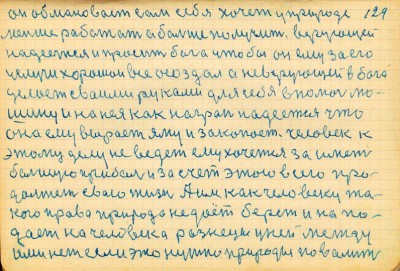 он обмановает сам себя хочет у природе 129
менше работат а балше получит. верующей
надеется и просит бога чтобы он ему за его
чемри хорошой все создал а неверующей в бога
делает своими руками для себя в помоч ма-
шину и на нея как на грап надеется что
она ему вырает яму и закопает. человек к
этому делу не ведет ему хочется за имет
балшую прибал и за счет этого всего про-
должет свого жизн А им как человеку та-
кого права природа не даёт берет и на по-
дает на человека разнецы у ней между
ими нет если это нужно природы повалит